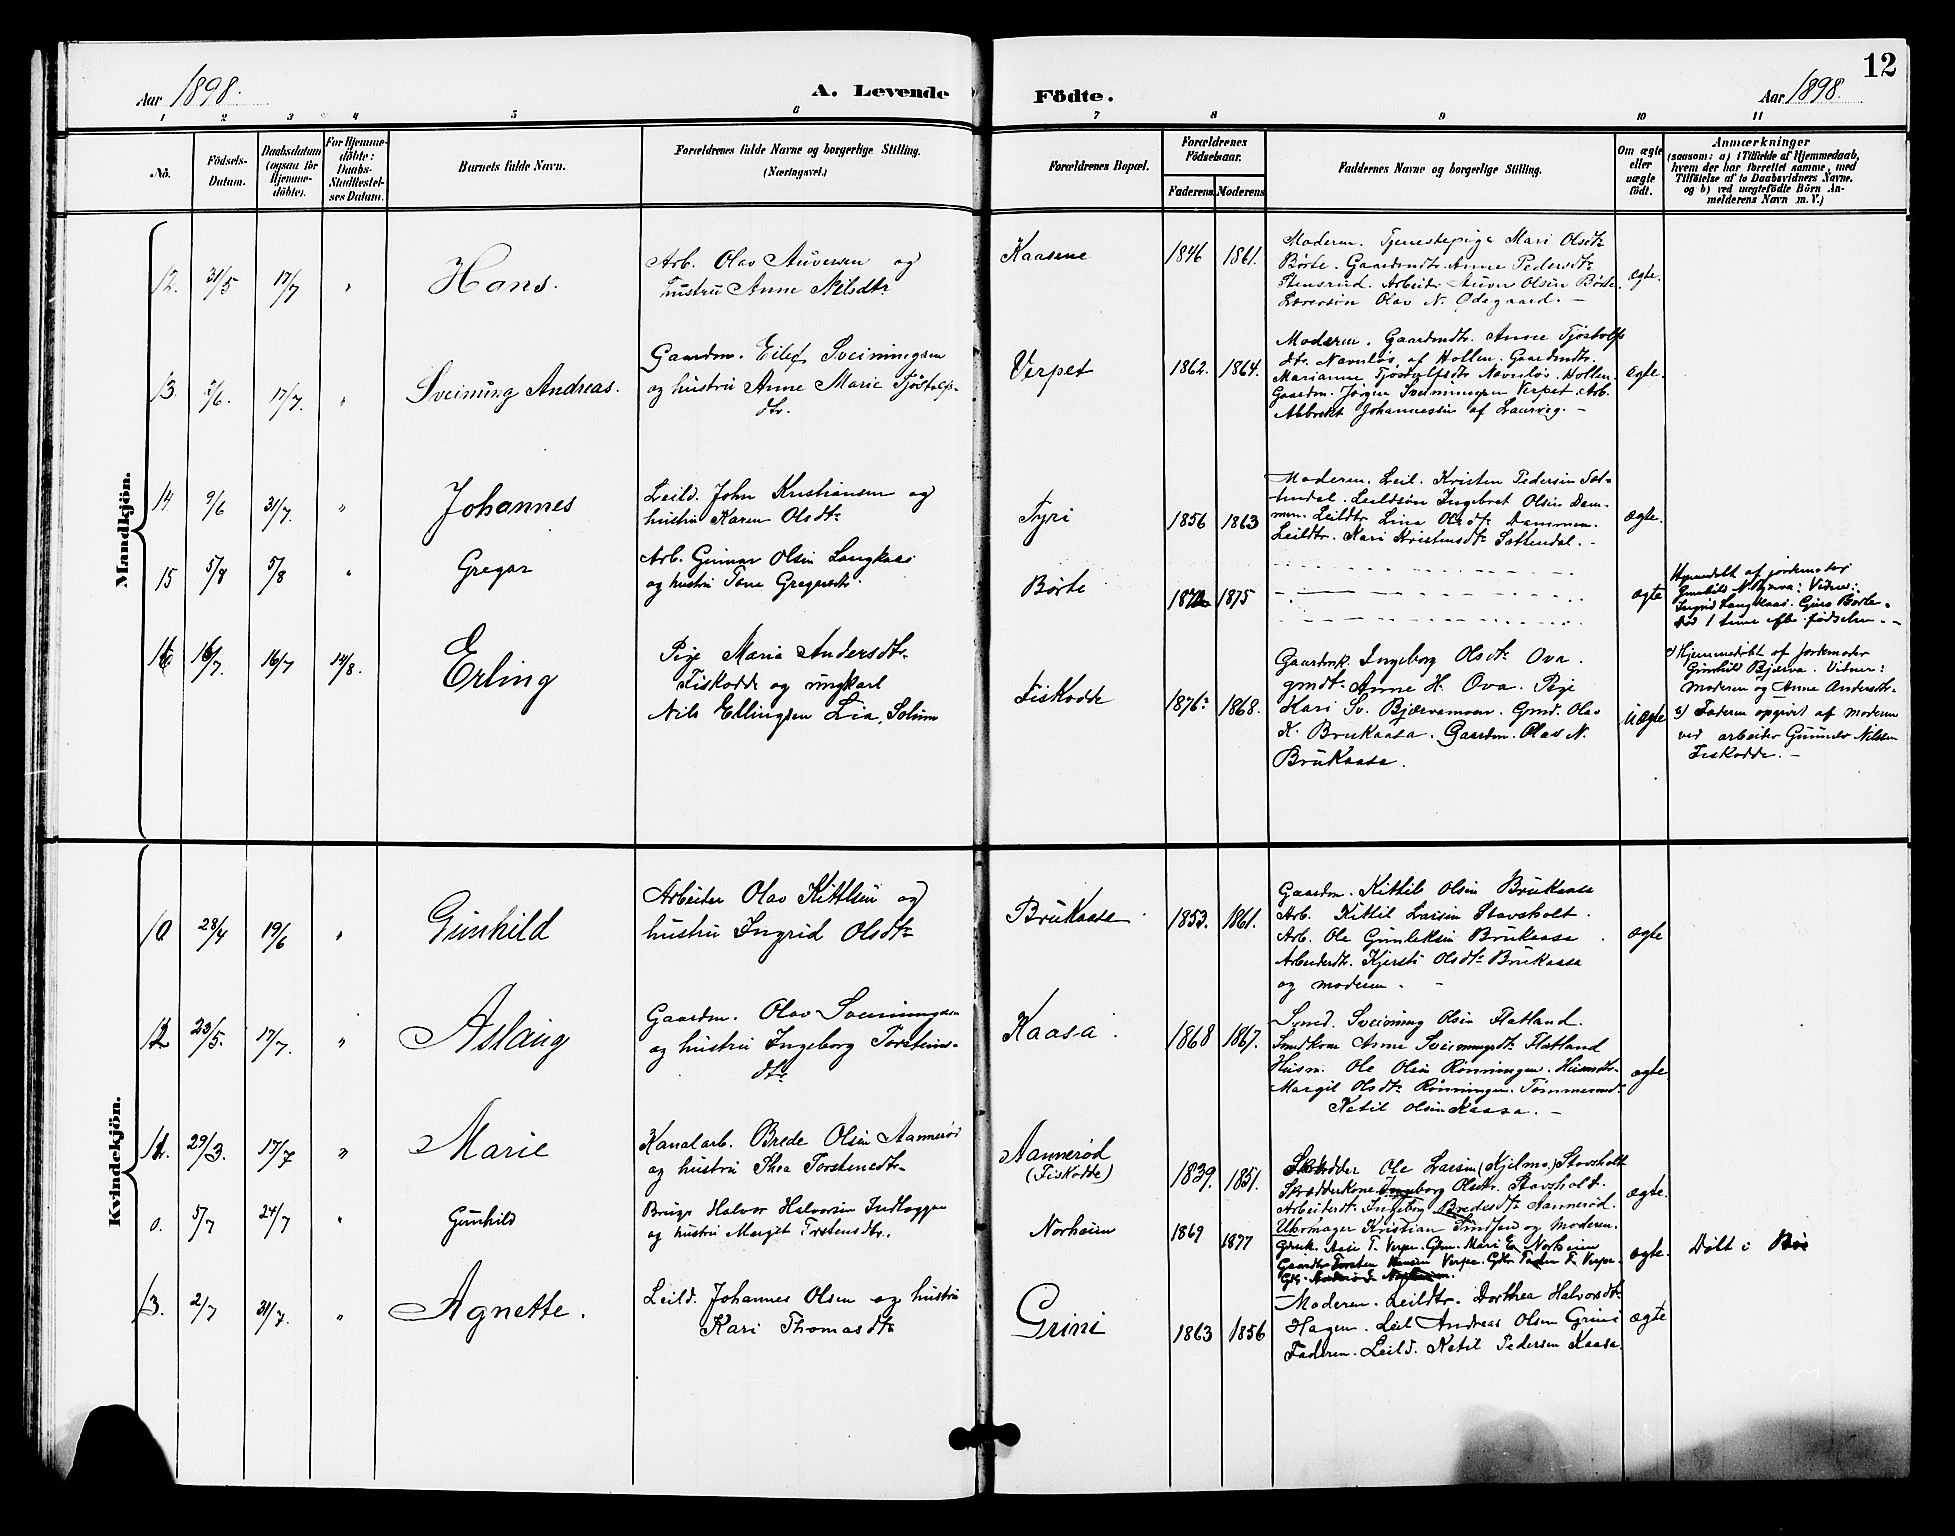 12
Aar 1898.
A. Levende Födte.
Aar 1898.
1 2 3 4 5 6 7 8 9 10 11
No.
Födsels-Datum.
Daabsdatum (ogsaa for Hjemme-döbte).
For Hjemme-döbte: Daabs-Stadfæstel-ses Datum.
Barnets fulde Navn.
Forældrenes fulde Navne og borgerlige Stilling.
(Næringsvei.)
Forældrenes Bopæl.
Forældrenes Födselsaar.
Faderens. Moderens.
Faddernes Navne og borgerlige Stilling.
Om ægte eller uægte födt.
Anmærkninger
(saasom: a) i Tilfælde af Hjemmedaab,
hvem der har forrettet samme, med
Tilföielse af to Daabsvidners Navne,
og b) ved uægtefödte Börn An-
melderens Navn m. V.)
Mandkjön.
12. 31/5 17/7 "
Hans.
Arb. Olav Auversen og
hustru Anne Nilsdtr
Kaasene
1846 1861.
Moderen. Tjenestepige Mari Olsdtr
Börte. Gaardmdtr. Anne Pedersdtr
Stensrud. Arbeider Auver Olsen Börte.
Lærersön Olav N. Ödegaard. –
ægte.
13. 2/6. 17/7. "
Sveinung Andreas.
Gaardm. Eilef Sveinungsen
og hustru Anne Marie Tjöstolfs-
dtr.
Verpet
1862. 1864.
Moderen. Gaardmdtr. Anne Tjöstolfs
dtr. Navnlös af Hollen. Gaardmdtr.
Marianne Tjöstolfsdtr Navnlös. Hollen.
Gaardm. Jörgen Sveinungsen Verpet. Arb.
Johannessen af Laurvig. –
ægte.
14. 9/6 31/7. "
Johannes
Leild. John Kristiansen og
hustru Karen Olsdtr
Tyri
1856 1863
Moderen. Leil. Kristen Pedersen Sat-
tendal. Leildsön Ingebret Olsen Dam-
men. Leildtr. Lina Olsdtr Dammen.
Leildtr. Kari Kristensdtr Sattendal. –
ægte.
15 5/8 5/8 "
Gregar
Arb. Gunnar Olsen Langkaas
og hustru Tone Gregarsdtr.
Börte
1875
ægte
Hjemmedöbt af jordemoder
Gunhild N. Bjerva: Vidner:
Ingrid Langkaas. Guro Börte.
Död 1 time efter födselen. –
16 16/7. 16/7 14/8.
Erling
Pige Maria Andersdtr.
Fiskodde og ungkarl
Nils Ellingsen Lia, Solum
Fiskodde
1876. 1868.
Gaardmk. Ingeborg Olsdtr Ova.
gmdtr Anne H. Ova. Pige
Kari Sv. Bjærvamoen. Gmd. Olav
K. Brukaasa. Gaardm. Olav N.
Brukaasa.
uægte
Hjemmedöbt af jordmoder
Gunhild Bjerva. Vidner:
Moderen og Anne Andersdtr.
Faderen opgivet af moderen
ved arbeider Gunder Nilsen
Fiskodde. –
Kvindekjön.
10 28/4 19/6 "
Gunhild
Arbeider Olav Kittilsen og
hustru Ingrid Olsdtr
Brukaasa
1853. 1861.
Gaardm. Kittil Olsen Brukaasa
Arb. Kittil Larsen Stavsholt.
Arb. Ole Gunleksen Brukaasa.
Arbeiderdtr. Kjersti Olsdtr Brukaasa
og moderen. –
ægte
12 23/5. 17/7. "
Aslaug
Gaardm. Olav Sveinungsen
og hustru Ingeborg Torsteins-
dtr
Kaasa.
1868 1867.
Smed. Sveinung Olsen Flatland.
Smedkone Anne Sveinungsdtr Flatland
Husm. Ole Olsen Rönningen. Husmdtr.
Margit Olsdtr Rönningen. Tömmermd.
Ketil Olsen Kaasa. –
ægte
11. 29/3. 17/7 "
Marie
Kanalarb. Brede Olsen Aannerød
og hustru Thea Torstensdtr.
Aannerød
(Fiskodde)
1839. 1851.
Skrædder Ole Larsen (Kjelmo.) Stavsholt
Skrædderkone Ingeborg Olsdtr. Stavsholt.
Arbeiderdtr. Ingeborg Bredesdtr Aannerød.
Uhrmager Kristian og moderen.
ægte.
0. 5/7 24/7 "
Gunhild
Brugs Halvor Halvorsen Indlæggen
og hustru Margit Torstensdtr.
Norheim
1869 1877
Gdmk. Aase T. Verpe. Gdm. Mari E. Norheim
Gaardbr. Torsten Hansen Verpe. Gdtr. T. Verpe.
ægte.
Döbt i Bö
13. 2/7 31/7. "
Agnette.
Leild. Johannes Olsen og hustru
Kari Thomasdtr
Grini
1863 1856
Moderen. Leildtr. Dorthea Halvorsdtr
Hagen. Leil Andreas Olsen Grini
Faderen. Leild. Ketil Pedersen Kaasa.
ægte